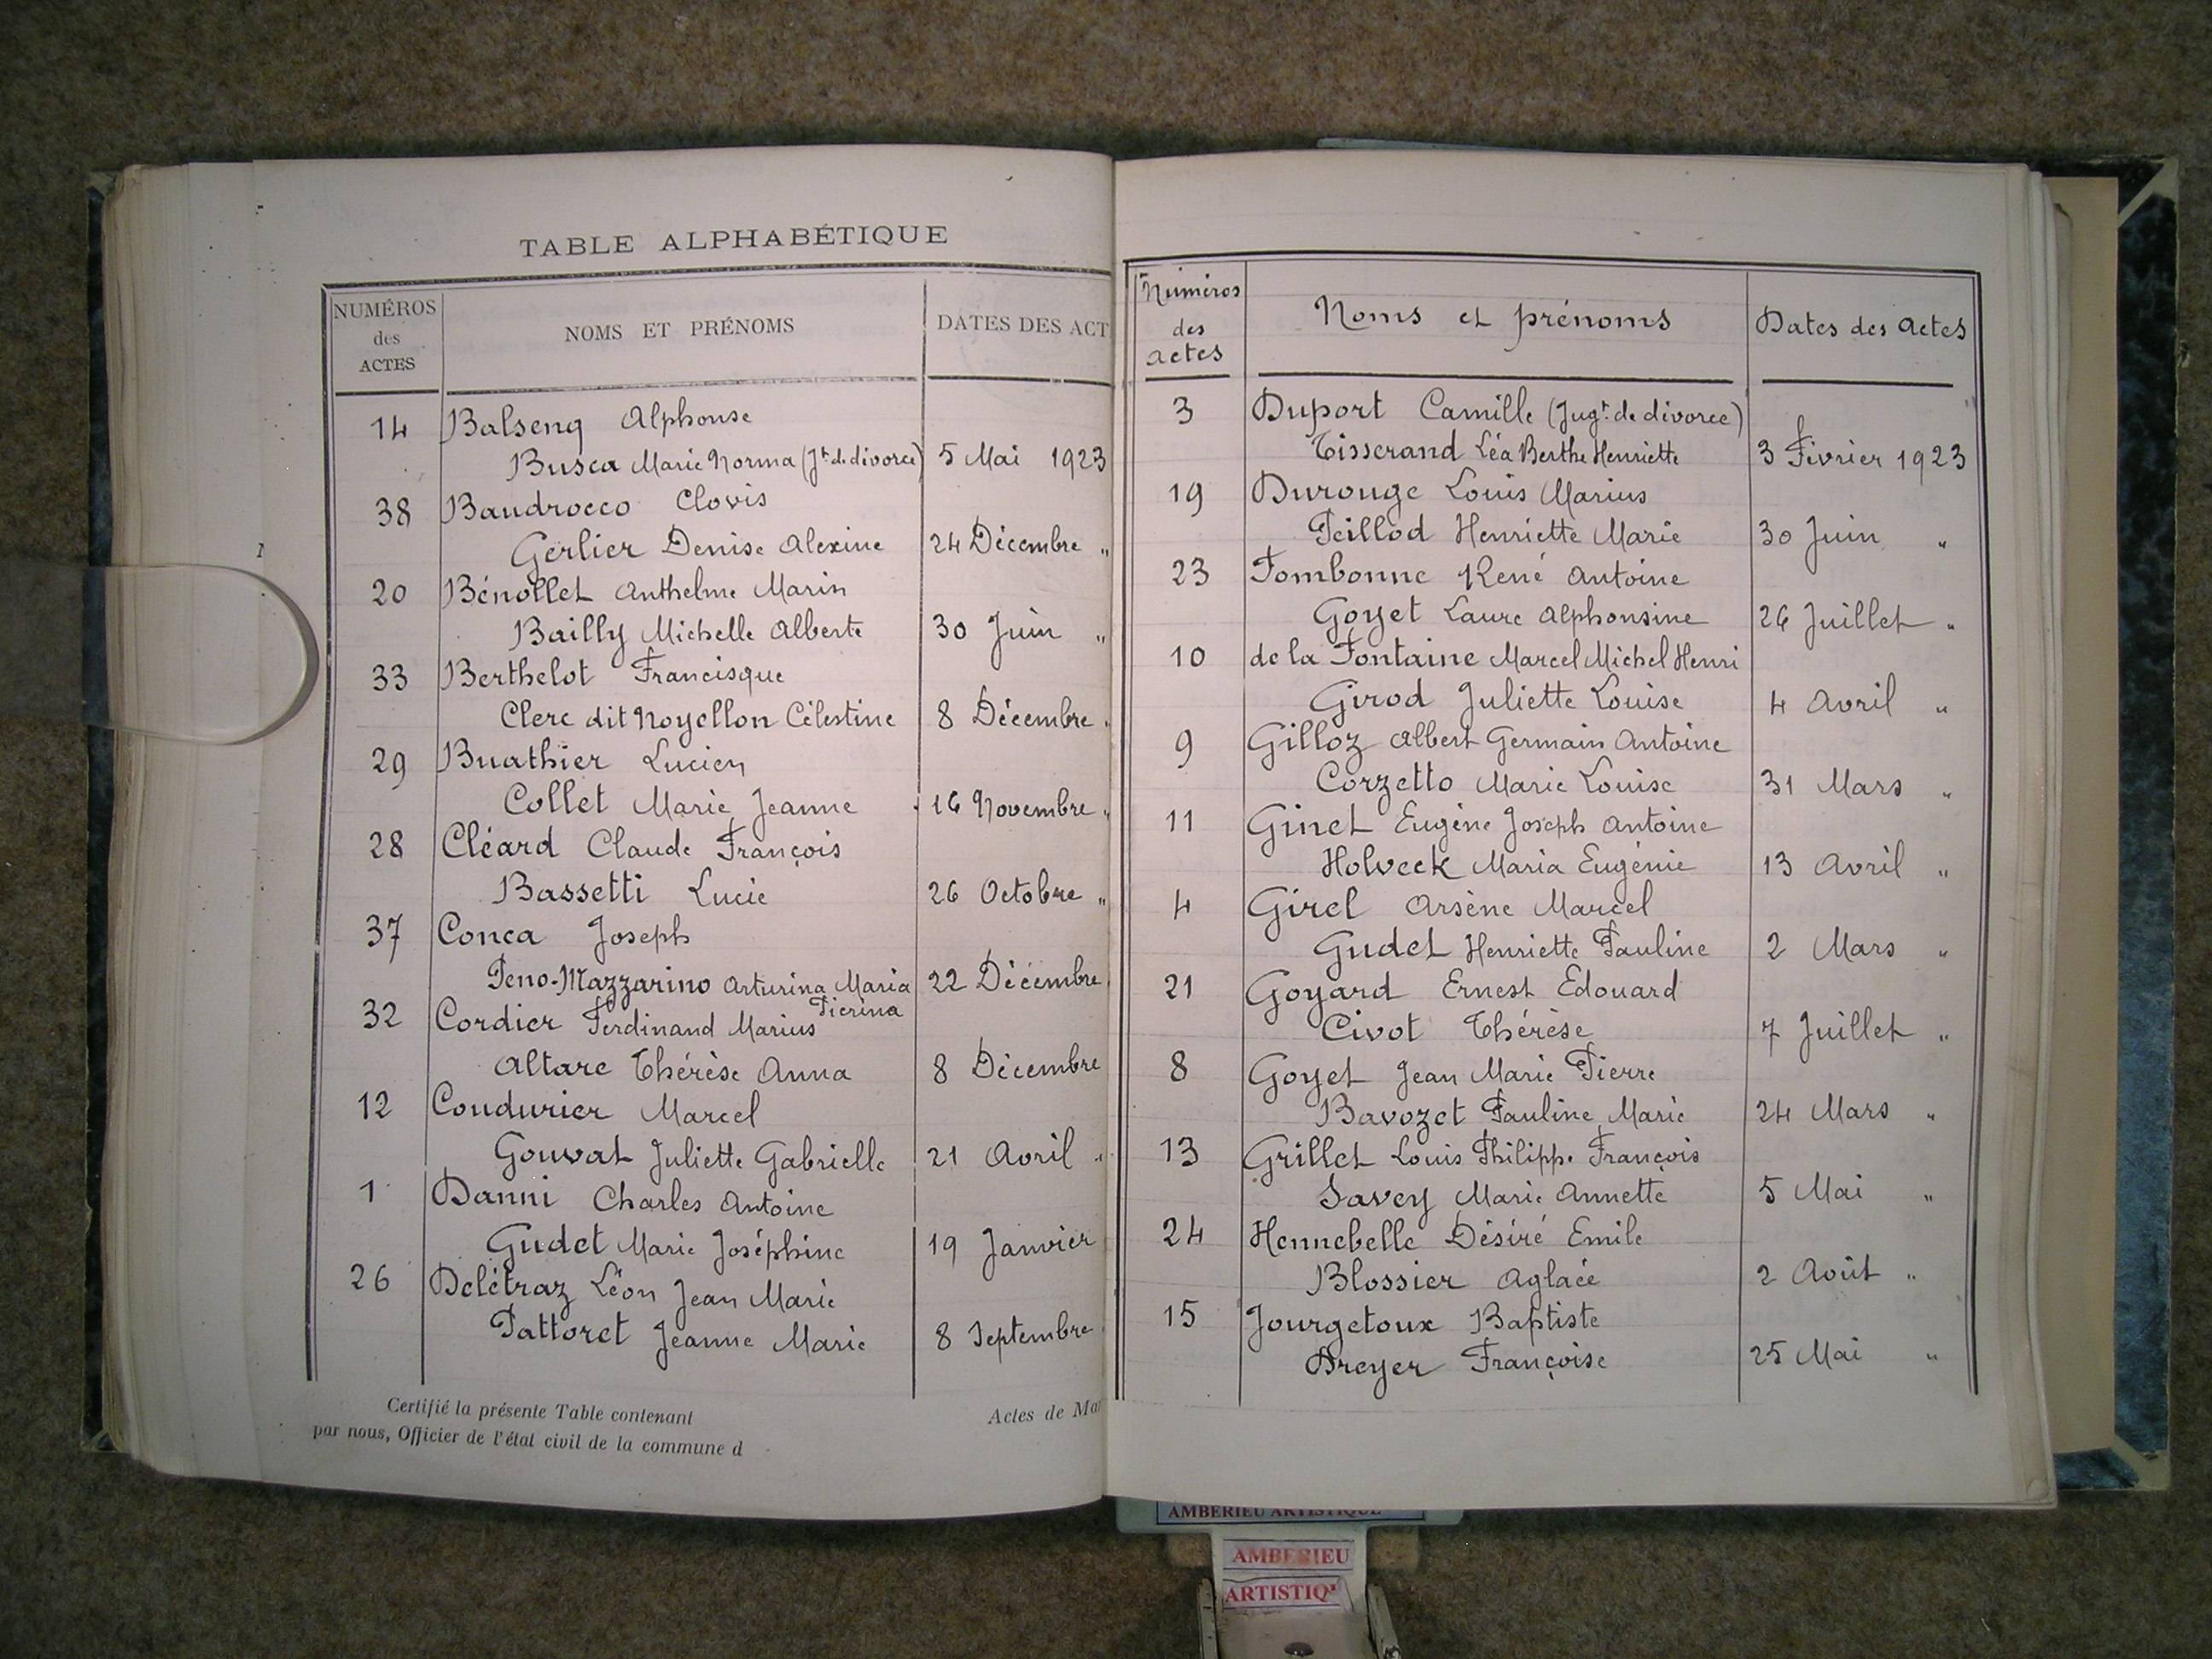 TABLE ALPHABÉTIQUE
NUMÉROS des ACTES NOMS ET PRÉNOMS DATES DES ACT
14 Balsenq Alphonse
Busca Marie Norma (Jt de divorce) 5 Mai 1923
38 Baudrocco Clovis
Gerlier Denise Alexine 24 Décembre "
20 Bénollet Anthelme Marin
Bailly Michelle Alberte 30 Juin "
33 Berthelot Francisque
Clerc dit Noyellon Célestine 8 Décembre "
29 Buathier Lucien
Collet Marie Jeanne 16 Novembre "
28 Cléard Claude François
Bassetti Lucie 26 Octobre "
37 Conca Joseph
Peno-Mazzarino Arturina Maria 22 Décembre
Pierina
32 Cordier Ferdinand Marius
Altare Thérèse Anna 8 Décembre
12 Coudurier Marcel
Gouvat Juliette Gabrielle 21 Avril "
1 Danni Charles Antoine
Gudet Marie Joséphine 19 Janvier
26 Delétraz Léon Jean Marie
Pattoret Jeanne Marie 8 Septembre
Certifié la présente Table contenant Actes de Mar
par nous, Officier de l'état civil de la commune d
Numéros des actes Noms et prénoms Dates des actes
3 Duport Camille (Jugt de divorce)
Tisserand Léa Berthe Henriette 3 Février 1923
19 Durouge Louis Marius
Peillod Henriette Marie 30 Juin "
23 Fombonne René Antoine
Goyet Laure Alphonsine 26 Juillet "
10 de la Fontaine Marcel Michel Henri
Girod Juliette Louise 4 Avril "
9 Gilloz Albert Germain Antoine
Corzetto Marie Louise 31 Mars "
11 Ginet Eugène Joseph Antoine
Holveck Maria Eugénie 13 Avril "
4 Girel Arsène Marcel
Gudet Henriette Pauline 2 Mars "
21 Goyard Ernest Edouard
Civot Thérèse 7 Juillet "
8 Goyet Jean Marie Pierre
Bavozet Pauline Marie 24 Mars "
13 Grillet Louis Philippe François
Savey Marie Annette 5 Mai "
24 Hennebelle Désiré Emile
Blossier Aglaée 2 Août "
15 Jourgetoux Baptiste
Dreyer Françoise 25 Mai "
AMBERIEU ARTISTIQUE
AMBERIEU
ARTISTIQ